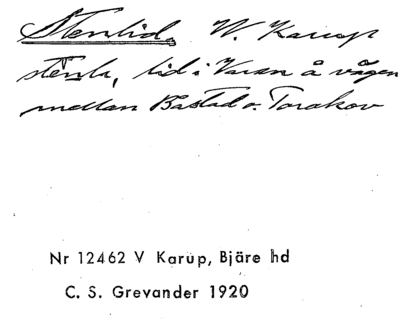 Stenlid. V. Karup
stenla, lid i Varan å vägen
mellan Båstad o. Torekov
Nr 12462 V Karup, Bjäre hd
C. S. Grevander 1920